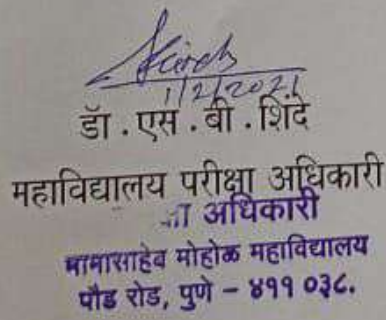 1/2/2021
डॉ . एस . बी . शिंदे
महाविद्यालय परीक्षा अधिकारी
अधिकारी
मामासाहेब मोहोळ महाविद्यालय
पौड रोड, पुणे – ४११ ०३८.